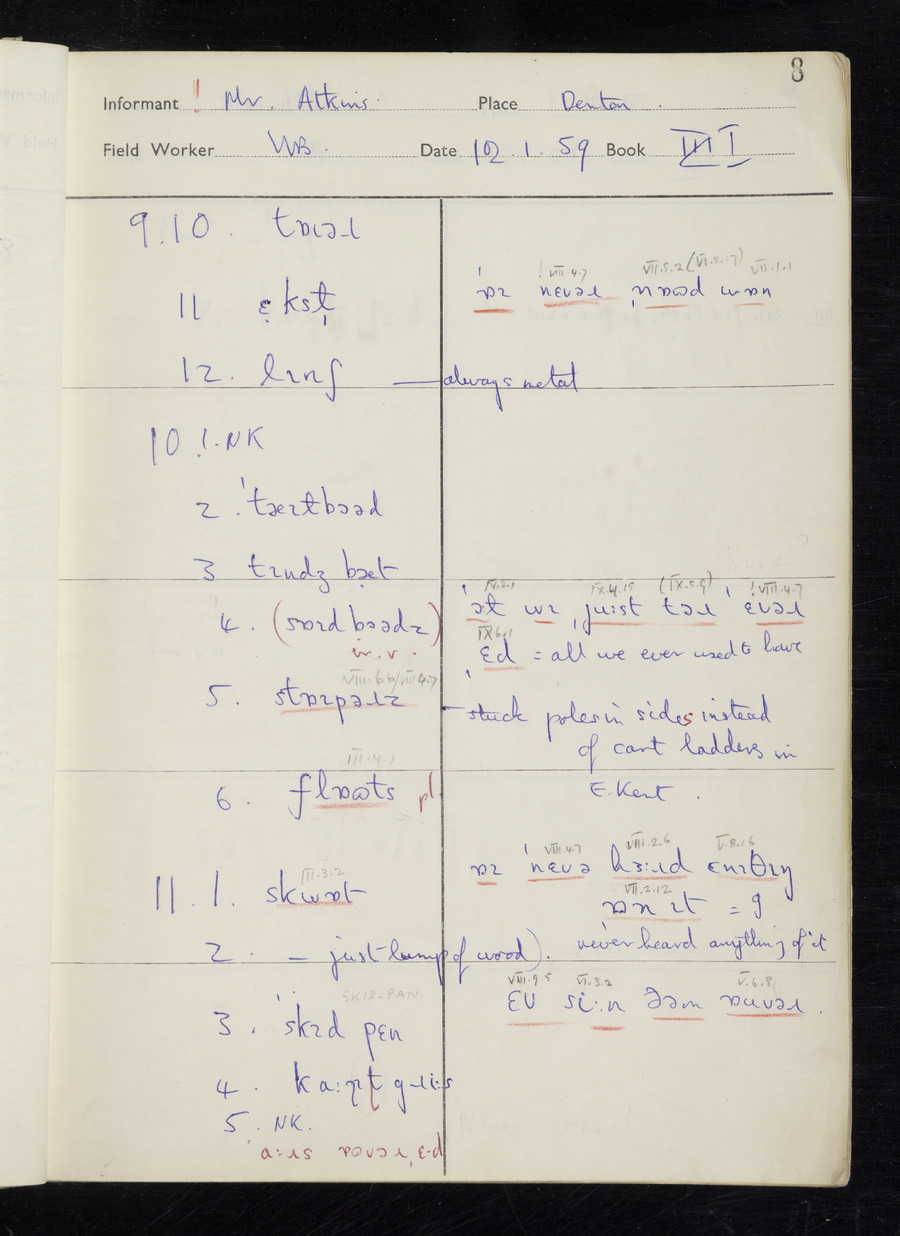 8
Informant ! Mr. Atkins. Place Denton.
Field Worker WB. Date 10.1.59 Book I
9.10. tɒɪəɹ
11 ɛkst
! VIII.4.7 VII.5.2 (VI.5.17) VII.1.1
ɒɪ nɛvəɹ wɒn
12. lɪnʃ — always metal
10 1. NK
2. 'tæɪɫbɔəd
3 tɹɪndʒ bæt
IV.2.1 IX.4.15 (IX.5.9) ! VIII.4.7
4. (sɒɪd bɔədz) ət wɪ juːst təɹ ɛvəɹ
i.r. v. IX.6.1
ɛd = all we ever used to have
VIII.6.6/VIII.4.7
5. — stuck poles in sides instead
of cart ladders in
III.4.1
6. flɒʊts pl. E. Kent.
VIII.4.7 VIII.2.6 V.8.16
ɒɪ 'nɛvə hɜːɹd ɛnɪθɪŋ
III.3.2 VII.2.12
11.1. skwɒt ɒn ɪt = 9
2. — just lump of wood). never heard anything of it
VIII.9.5 VI.3.2 V.6.8
ɛv siːn
SKID-PAN
3. skɪd pɛn
4. kaːɹt gɹiːs
5. NK.